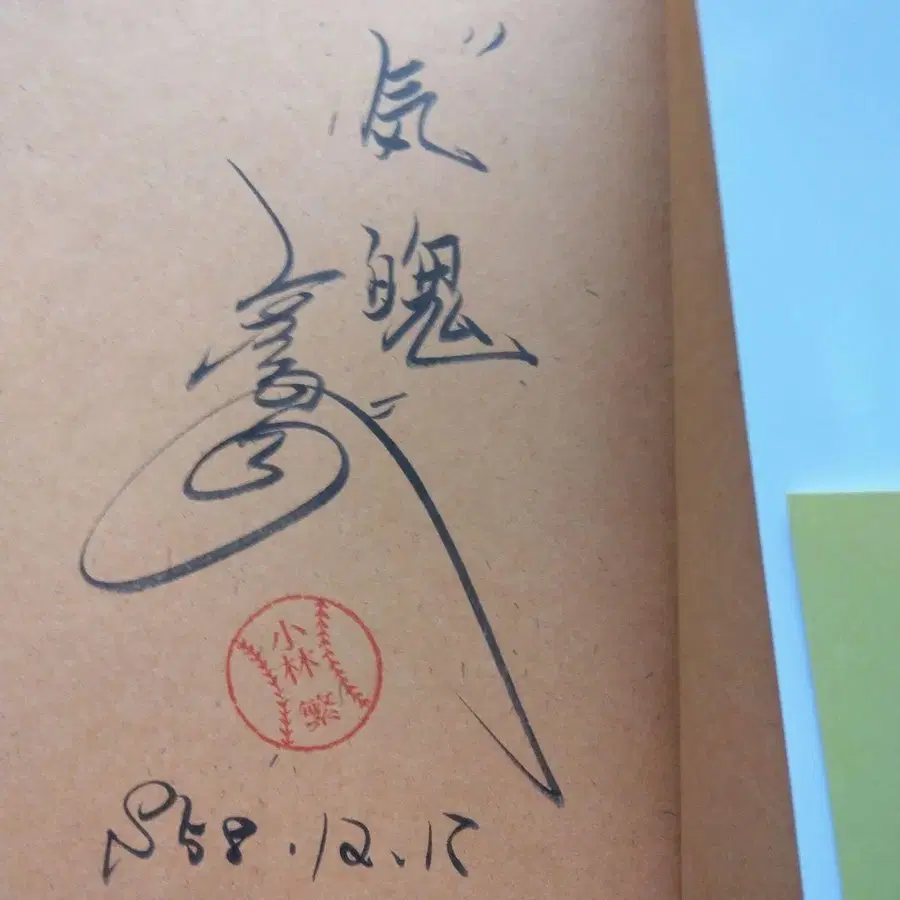 "気魄"
小林
繁
S58.12.17